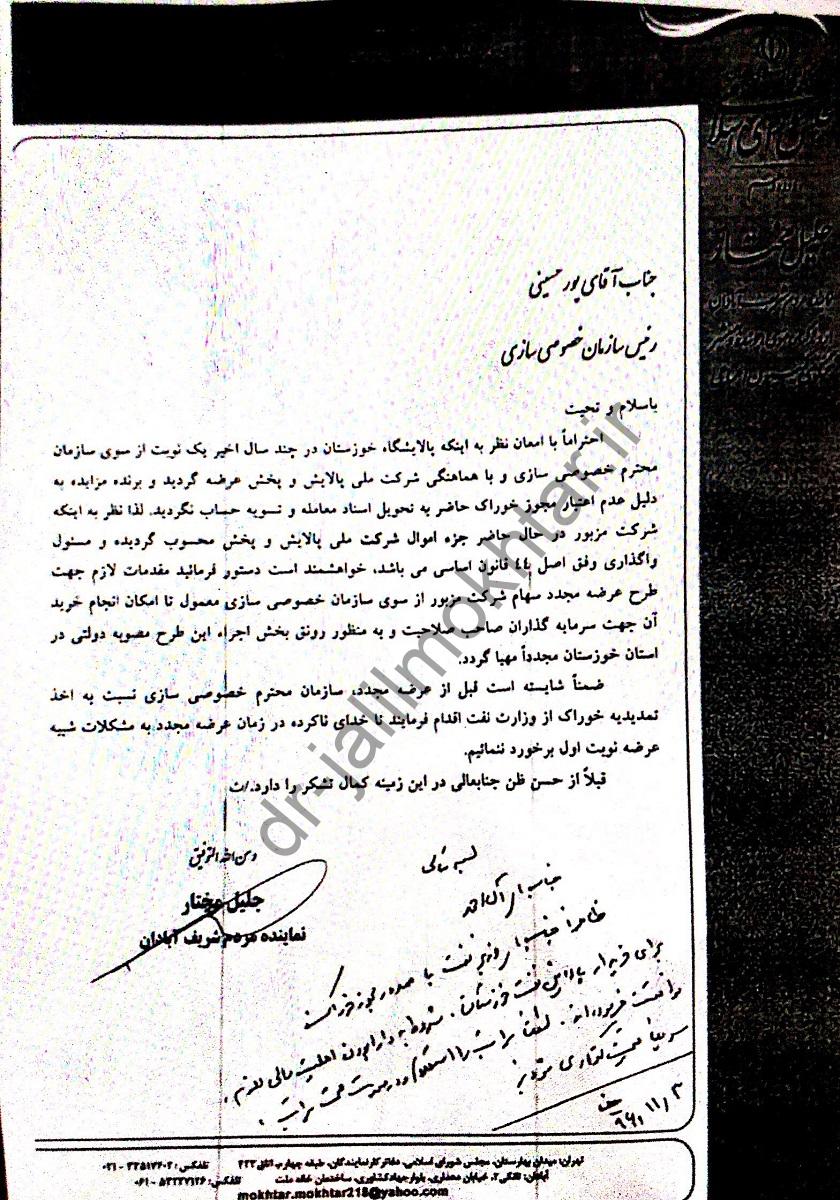 جلیل مختار
جناب آقای پور حسینی
رئیس سازمان خصوصی سازی
باسلام و تحیت
احتراماً با امعان نظر به اینکه پالایشگاه خوزستان در چند سال اخیر یک نوبت از سوی سازمان
محترم خصوصی سازی و با هماهنگی شرکت ملی پالایش و پخش عرضه گردید و برنده مزایده به
دلیل عدم اعتبار مجوز خوراک حاضر به تحویل اسناد معامله و تسویه حساب نگردید. لذا نظر به اینکه
شرکت مزبور در حال حاضر جزء اموال شرکت ملی پالایش و پخش محسوب گردیده و مسئول
واگذاری وفق اصل ٤٤ قانون اساسی می باشد، خواهشمند است دستور فرمائید مقدمات لازم جهت
طرح عرضه مجدد سهام شرکت مزبور از سوی سازمان خصوصی سازی معمول تا امکان انجام خرید
آن جهت سرمایه گذاران صاحب صلاحیت و به منظور رونق بخش اجراء این طرح مصوبه دولتی در
استان خوزستان مجدداً مهیا گردد.
ضمناً شایسته است قبل از عرضه مجدد، سازمان محترم خصوصی سازی نسبت به اخذ
تمدیدیه خوراک از وزارت نفت اقدام فرمایند تا خدای ناکرده در زمان عرضه مجدد به مشکلات شبیه
عرضه نوبت اول برخورد ننمائیم.
قبلاً از حسن ظن جنابعالی در این زمینه کمال تشکر را دارد./ت
ومن الله التوفیق
جلیل مختار
نماینده مردم شریف آبادان
بسمه تعالی
جناب
ظاهراً جناب وزیر نفت با صدور مجوز خوراک
برای خریدار پالایش نفت خوزستان، مشروط به دارا بودن اهلیت مالی لازم،
موافقت فرموده اند. لطفاً مراتب را استعلام و در صورت صحت مراتب،
سریعاً
۹۶/۱۱/۳
dr-jalilmokhtar.ir
تهران: میدان بهارستان، مجلس شورای اسلامی، دفاتر کار نمایندگان، طبقه چهارم، اتاق ۴۲۳ تلفکس: ۳۳۵۱۷۶۰۲ - ۰۲۱
آبادان: خیابان بلوار جهادکشاورزی، ساختمان خانه ملت تلفکس: ۵۳۲۳۷۱۲۶ - ۰۶۱
mokhtar.mokhtar218@yahoo.com